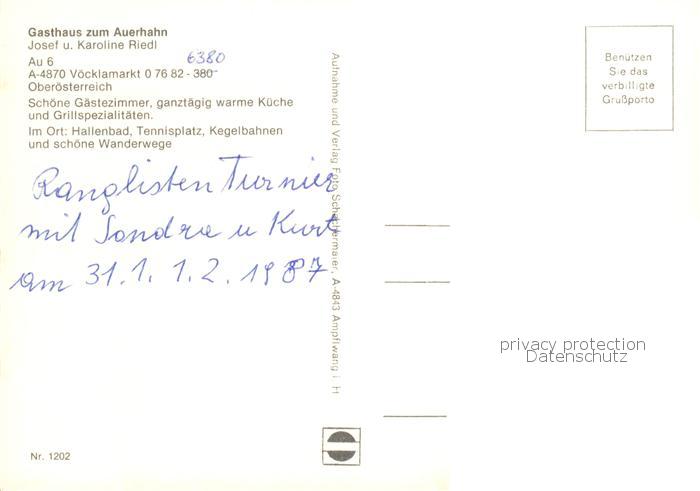 Gasthaus zum Auerhahn
Josef u. Karoline Riedl
Au 6
6380
A-4870 Vöcklamarkt 0 76 82 - 380
Oberösterreich
Schöne Gästezimmer, ganztägig warme Küche
und Grillspezialitäten.
Im Ort: Hallenbad, Tennisplatz, Kegelbahnen
und schöne Wanderwege
Ranglisten Turnier
mit Sandra u Kurt
am 31.1. 1.2. 1987
Nr. 1202
Aufnahme und Verlag Foto A-4843 Ampflwang i. H
Benützen
Sie das
verbilligte
Grußporto
privacy protection
Datenschutz